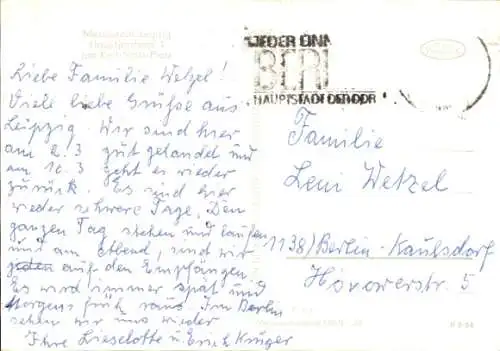 Messestadt Leipzig
am Karl-Marx-Platz
Liebe Familie Wetzel!
Viele liebe Grüße aus
Leipzig. Wir sind hier
am 2.3 gut gelandet und
am 10.3 geht es wieder
zurück. Es sind hier
wieder schwere Tage. Den
ganzen Tag stehen und laufen
und am Abend, sind wir
jeden auf den Empfängen
Es wird immer spät und
Morgens früh raus. Im Berlin
sehen wir uns wieder
Ihre Lieselotte u. Erich Krüger
WIEDER EINM
BERL
HAUPTSTADT DER DDR
Familie
Leni Wetzel
1138) Berlin-Kaulsdorf
Hönowerstr. 5